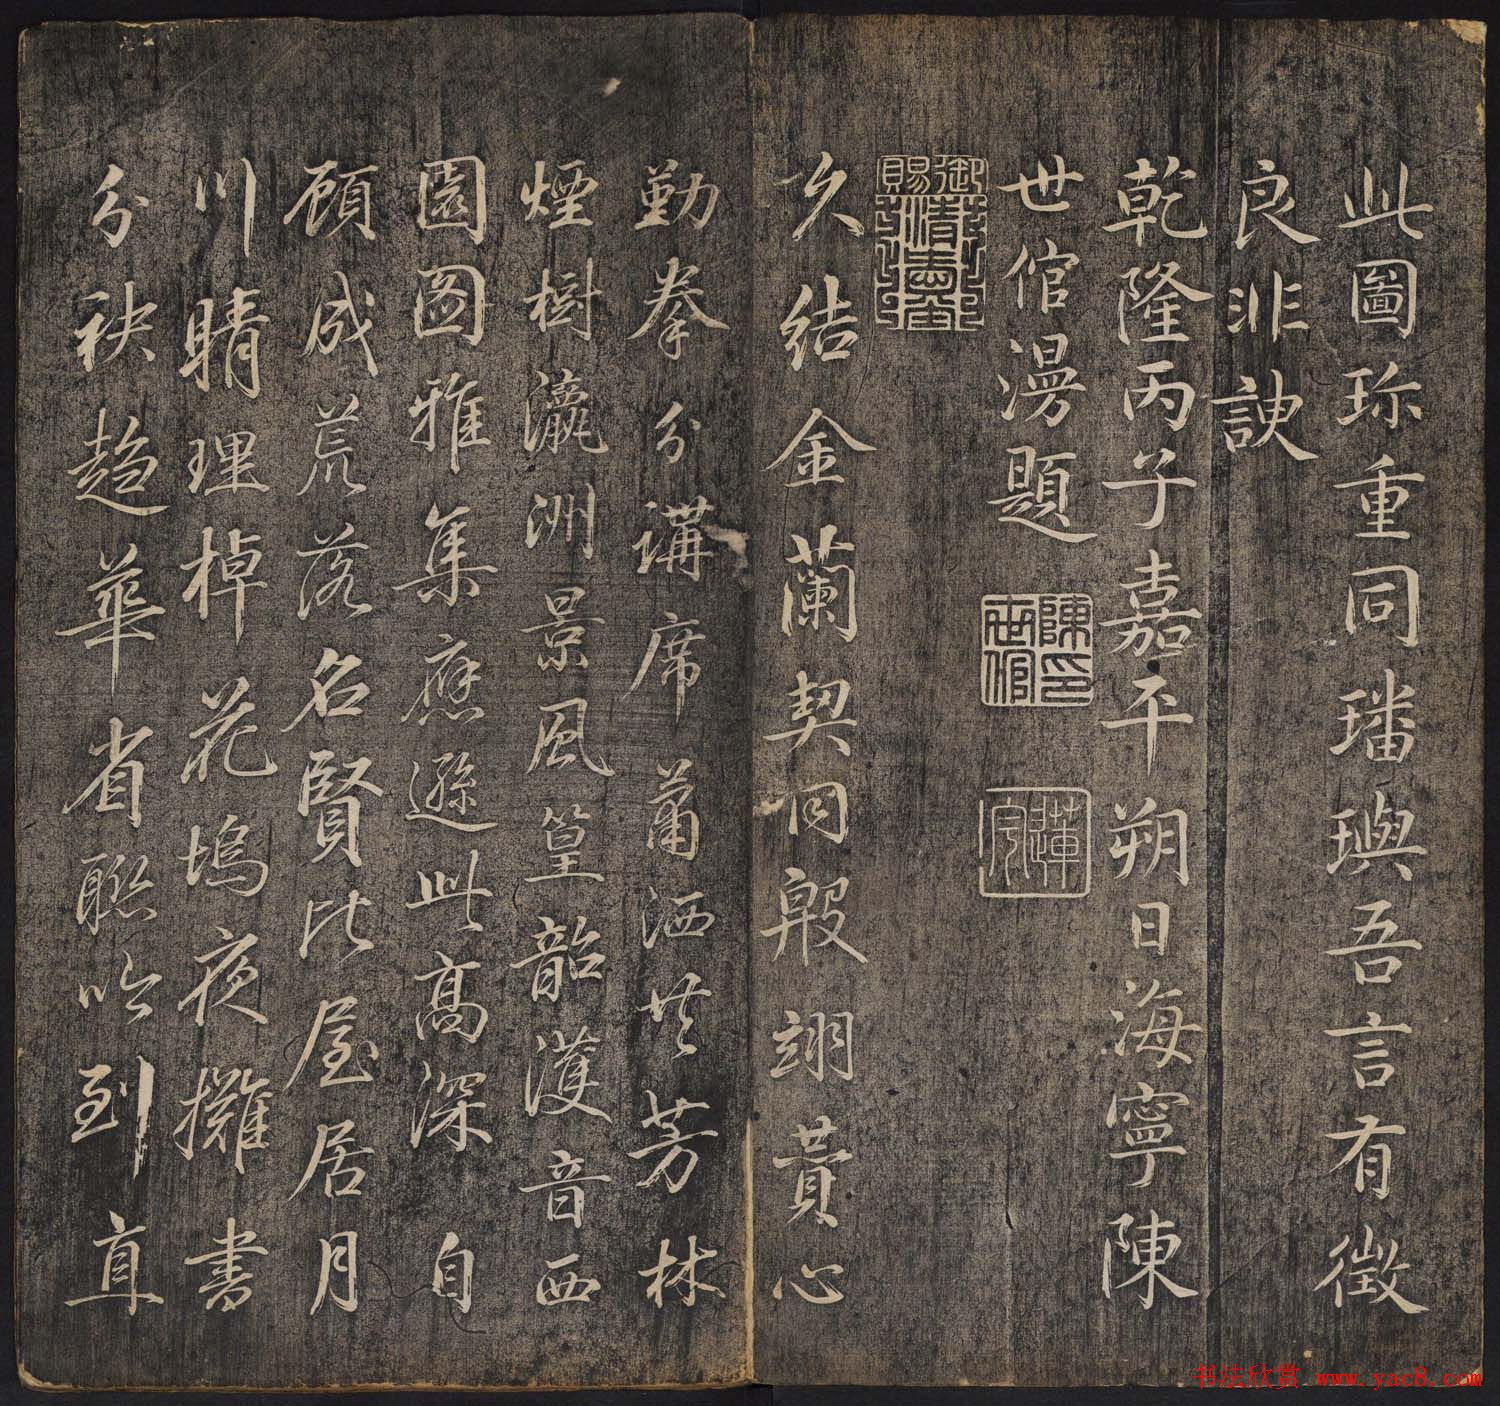 此圖珎重同璠璵吾言有徵
良非諛
乾隆丙子嘉平朔日海寧陳
世倌漫題
陳世倌印
蓮宇
御賜
久結金蘭契同殷翊贊心
勤拳分講席蕭洒共芳林
煙樹瀛洲景風篁韶濩音西
園圖雅集應遜此高深自
顧成荒落名賢比屋居月
川晴理棹花塢夜攤書
分袂趨華省聯吟到直
书法欣赏 www.yac8.com